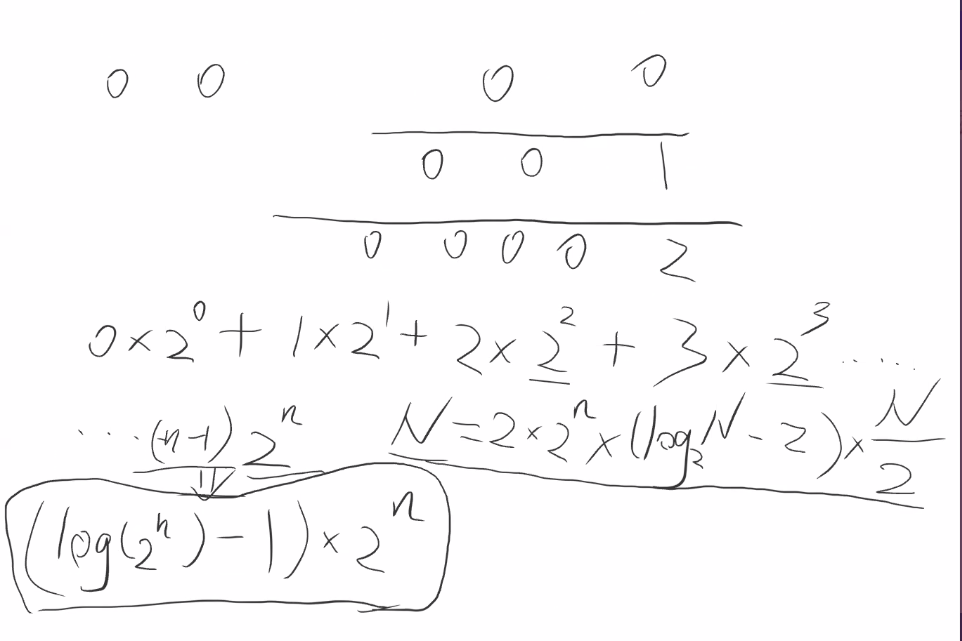 0 0 0 0
0 0 1
0 0 0 0 2
0×2⁰ + 1×2¹ + 2×2² + 3×2³ ......
...(n-1) 2ⁿ N=2×2ⁿ×(log₂N-2)×N/2
(log(2ⁿ)-1)×2ⁿ